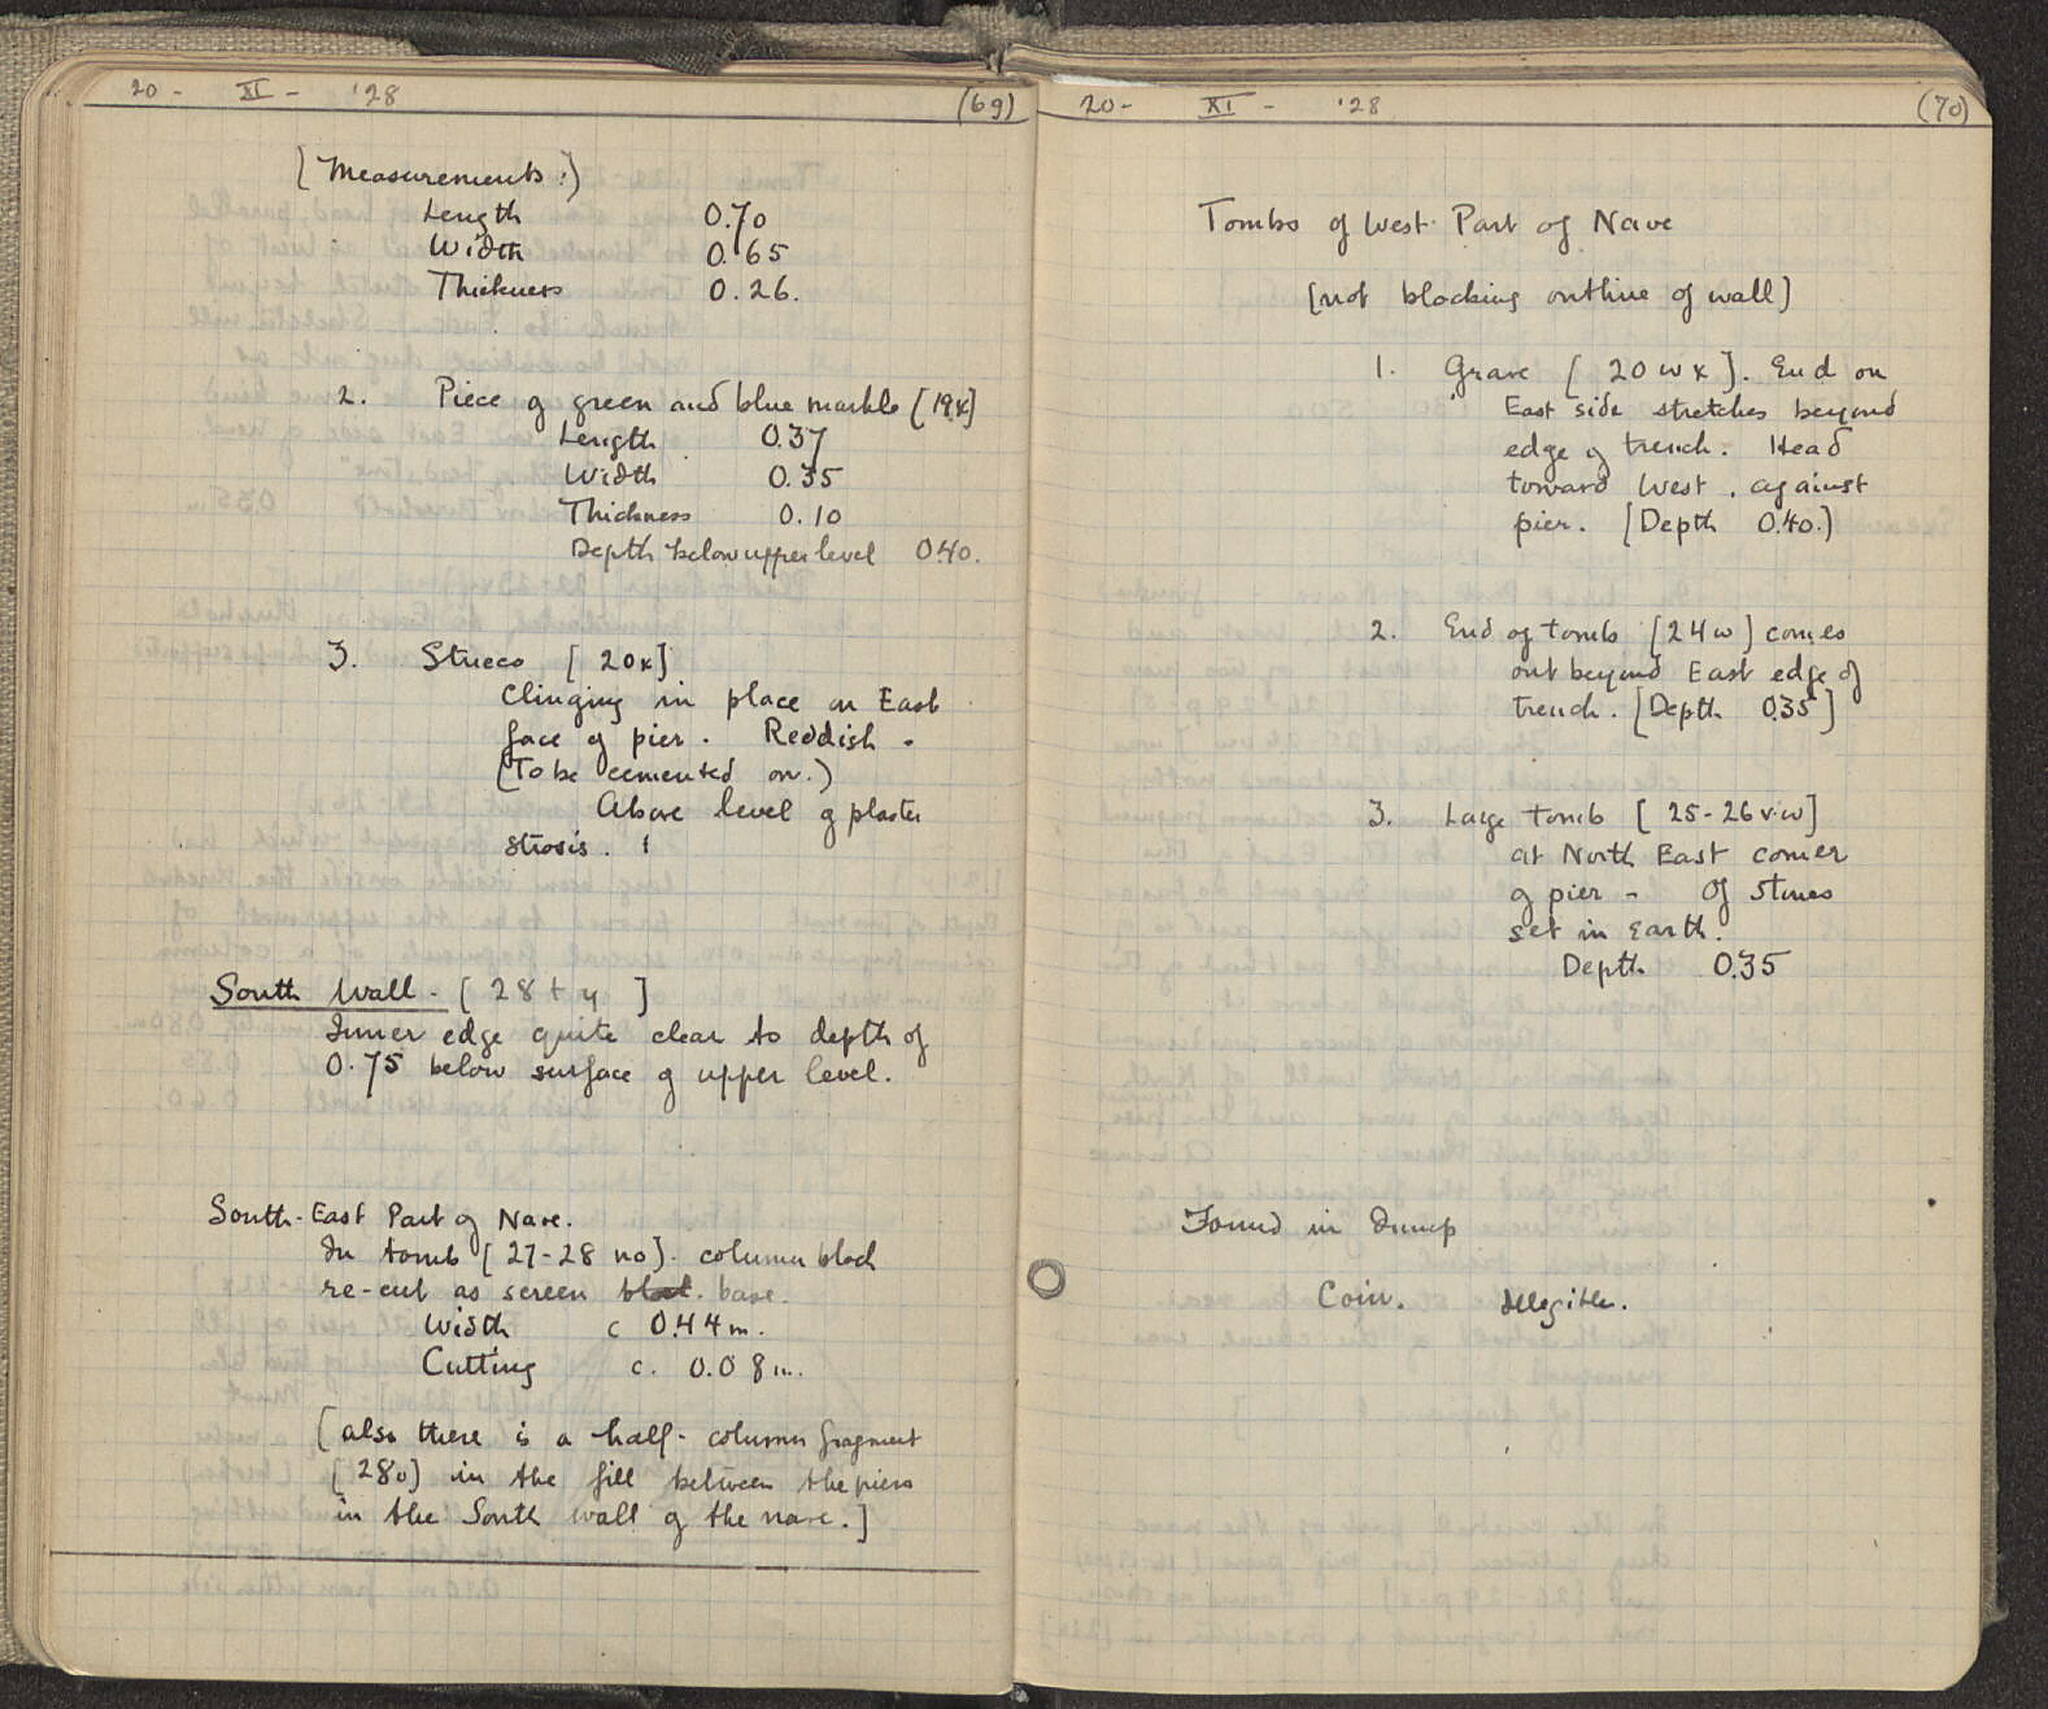 20 - XI - '28 (69)
[Measurements:)
Length 0.70
Width 0.65
Thickness 0.26.
2. Piece of green and blue marble [19x]
Length 0.37
Width 0.35
Thickness 0.10
Depth below upper level 0.40.
3. Stucco [20x]
Clinging in place on East
face of pier. Reddish.
(To be cemented on.)
Above level of plaster
strosis.
South Wall - [28 t y ]
Inner edge quite clear to depth of
0.75 below surface of upper level.
South-East Part of Nave.
In tomb [27-28 no]. column block
re-cut as screen base.
Width c 0.44 m.
Cutting c. 0.08 m.
[also there is a half-column fragment
[28o] in the fill between the piers
in the South wall of the nave.]
20- XI - '28 (70)
Tombs of West Part of Nave
[not blocking outline of wall]
1. Grave [20 w x]. End on
East side stretches beyond
edge of trench. Head
toward West, against
pier. [Depth 0.40.)
2. End of tomb [24w] comes
out beyond East edge of
trench. [Depth 0.35]
3. Large tomb [25-26 v-w]
at North East corner
of pier - Of stones
set in Earth.
Depth 0.35
Found in Dump
Coin. Illegible.